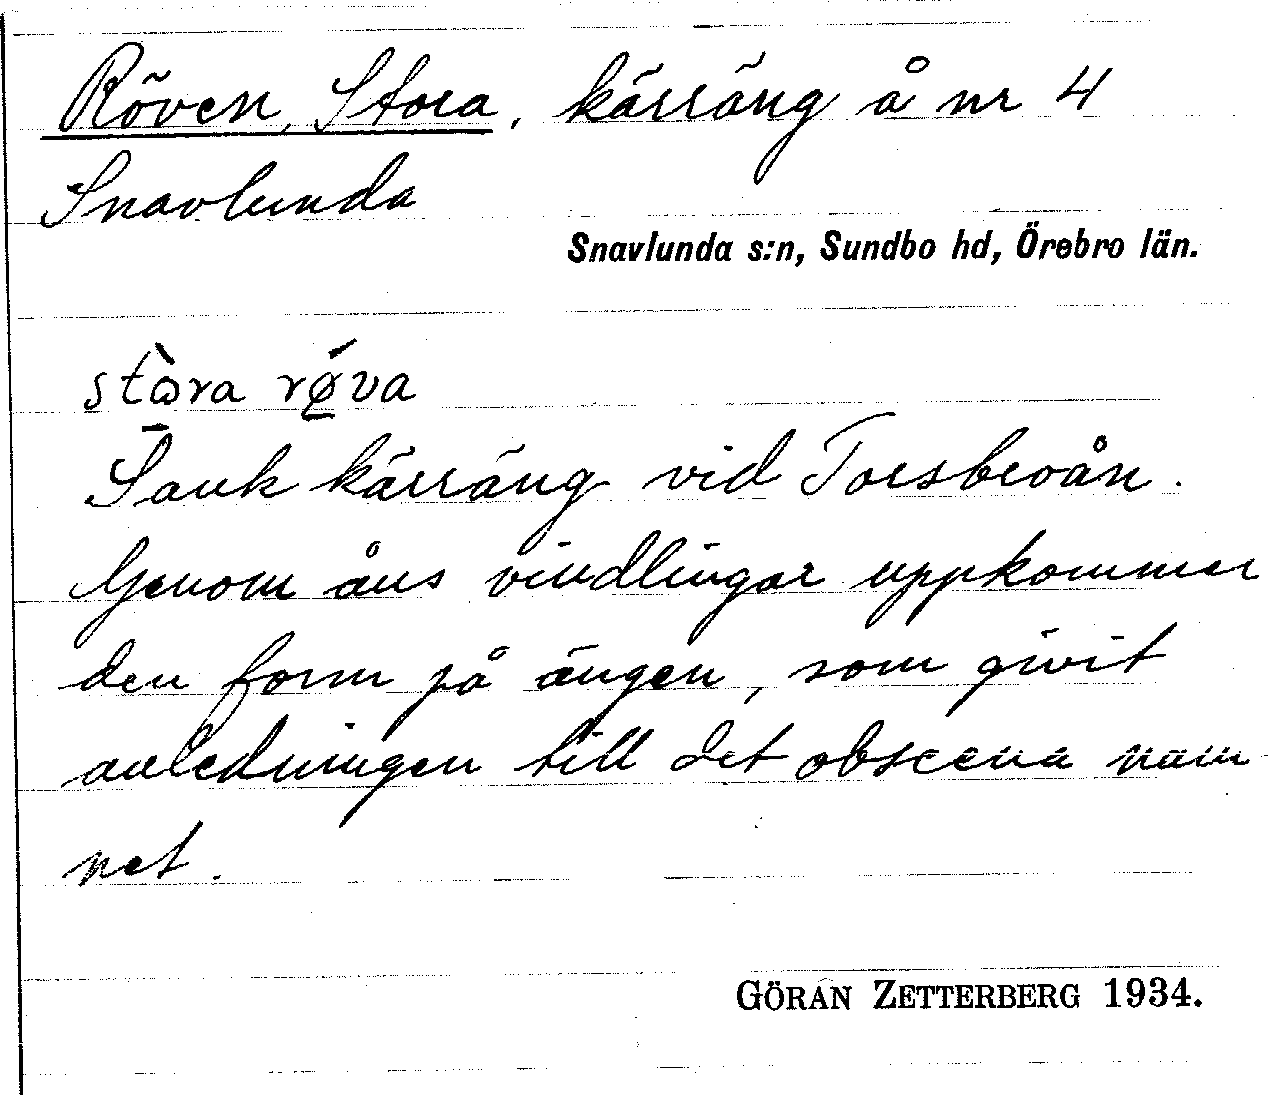 Röven, Stora, kärräng å nr 4
Snavlunda
Snavlunda s:n, Sundbo hd, Örebro län.
stòra rǿva
Sank kärräng vid Torsbroån.
Genom åns vindlingar uppkommer
den form på ängen, som givit
anledningen till det obscena nam-
net.
GÖRAN ZETTERBERG 1934.